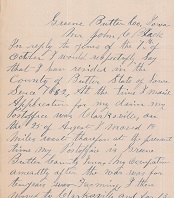 Greene Butler Co, Iowa
Mr John C. Black
In reply to yours of the 1st of
October I would respectfully say
that I have resided in the
County of Butler State of Iowa
Since 1862, At the time I made
Application for my claim my
Postoffice was Clarksville, on
the 23 of August I moved 14
miles west therefore at the present
time my Postoffice is Greene
Butler County Iowa My occupation
directly after the war was for
two years was Farming, I then
moved to Clarksville and for 12